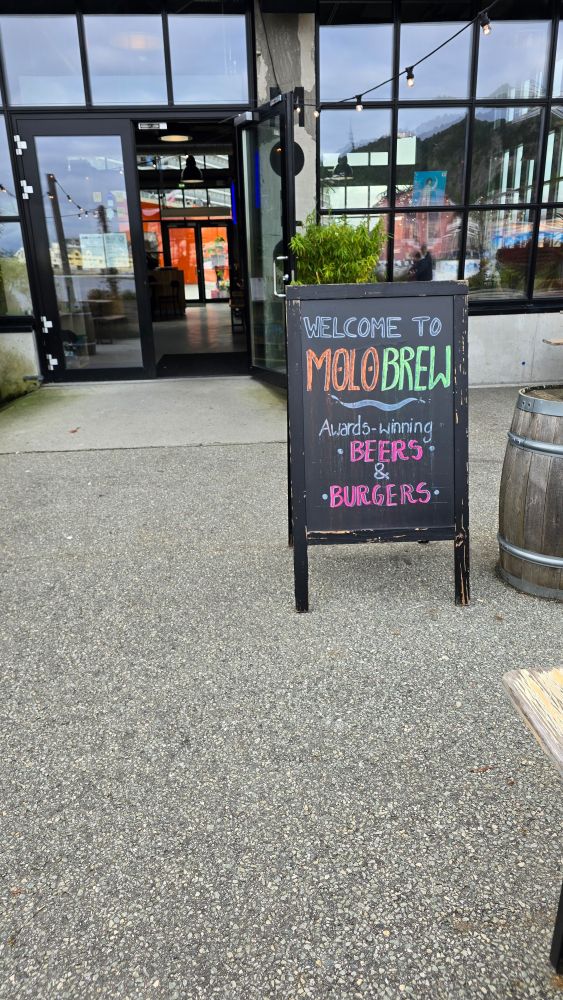 WELCOME TO
MOLOBREW
Awards-winning
BEERS
&
BURGERS